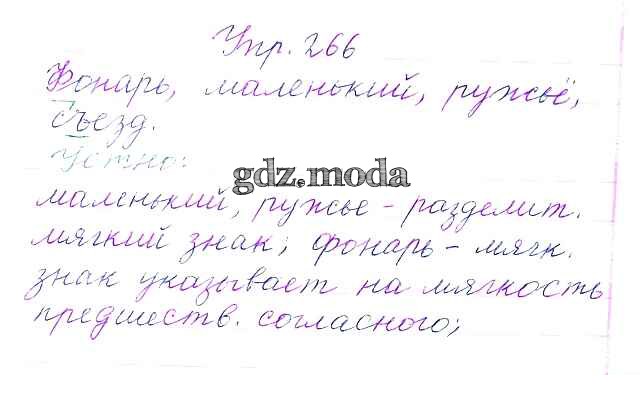 Упр. 266
Фонарь, маленький, ружьё,
съезд.
Устно:
gdz.moda
маленький, ружье - разделит.
мягкий знак; фонарь - мягк.
знак указывает на мягкость
предшеств. согласного;